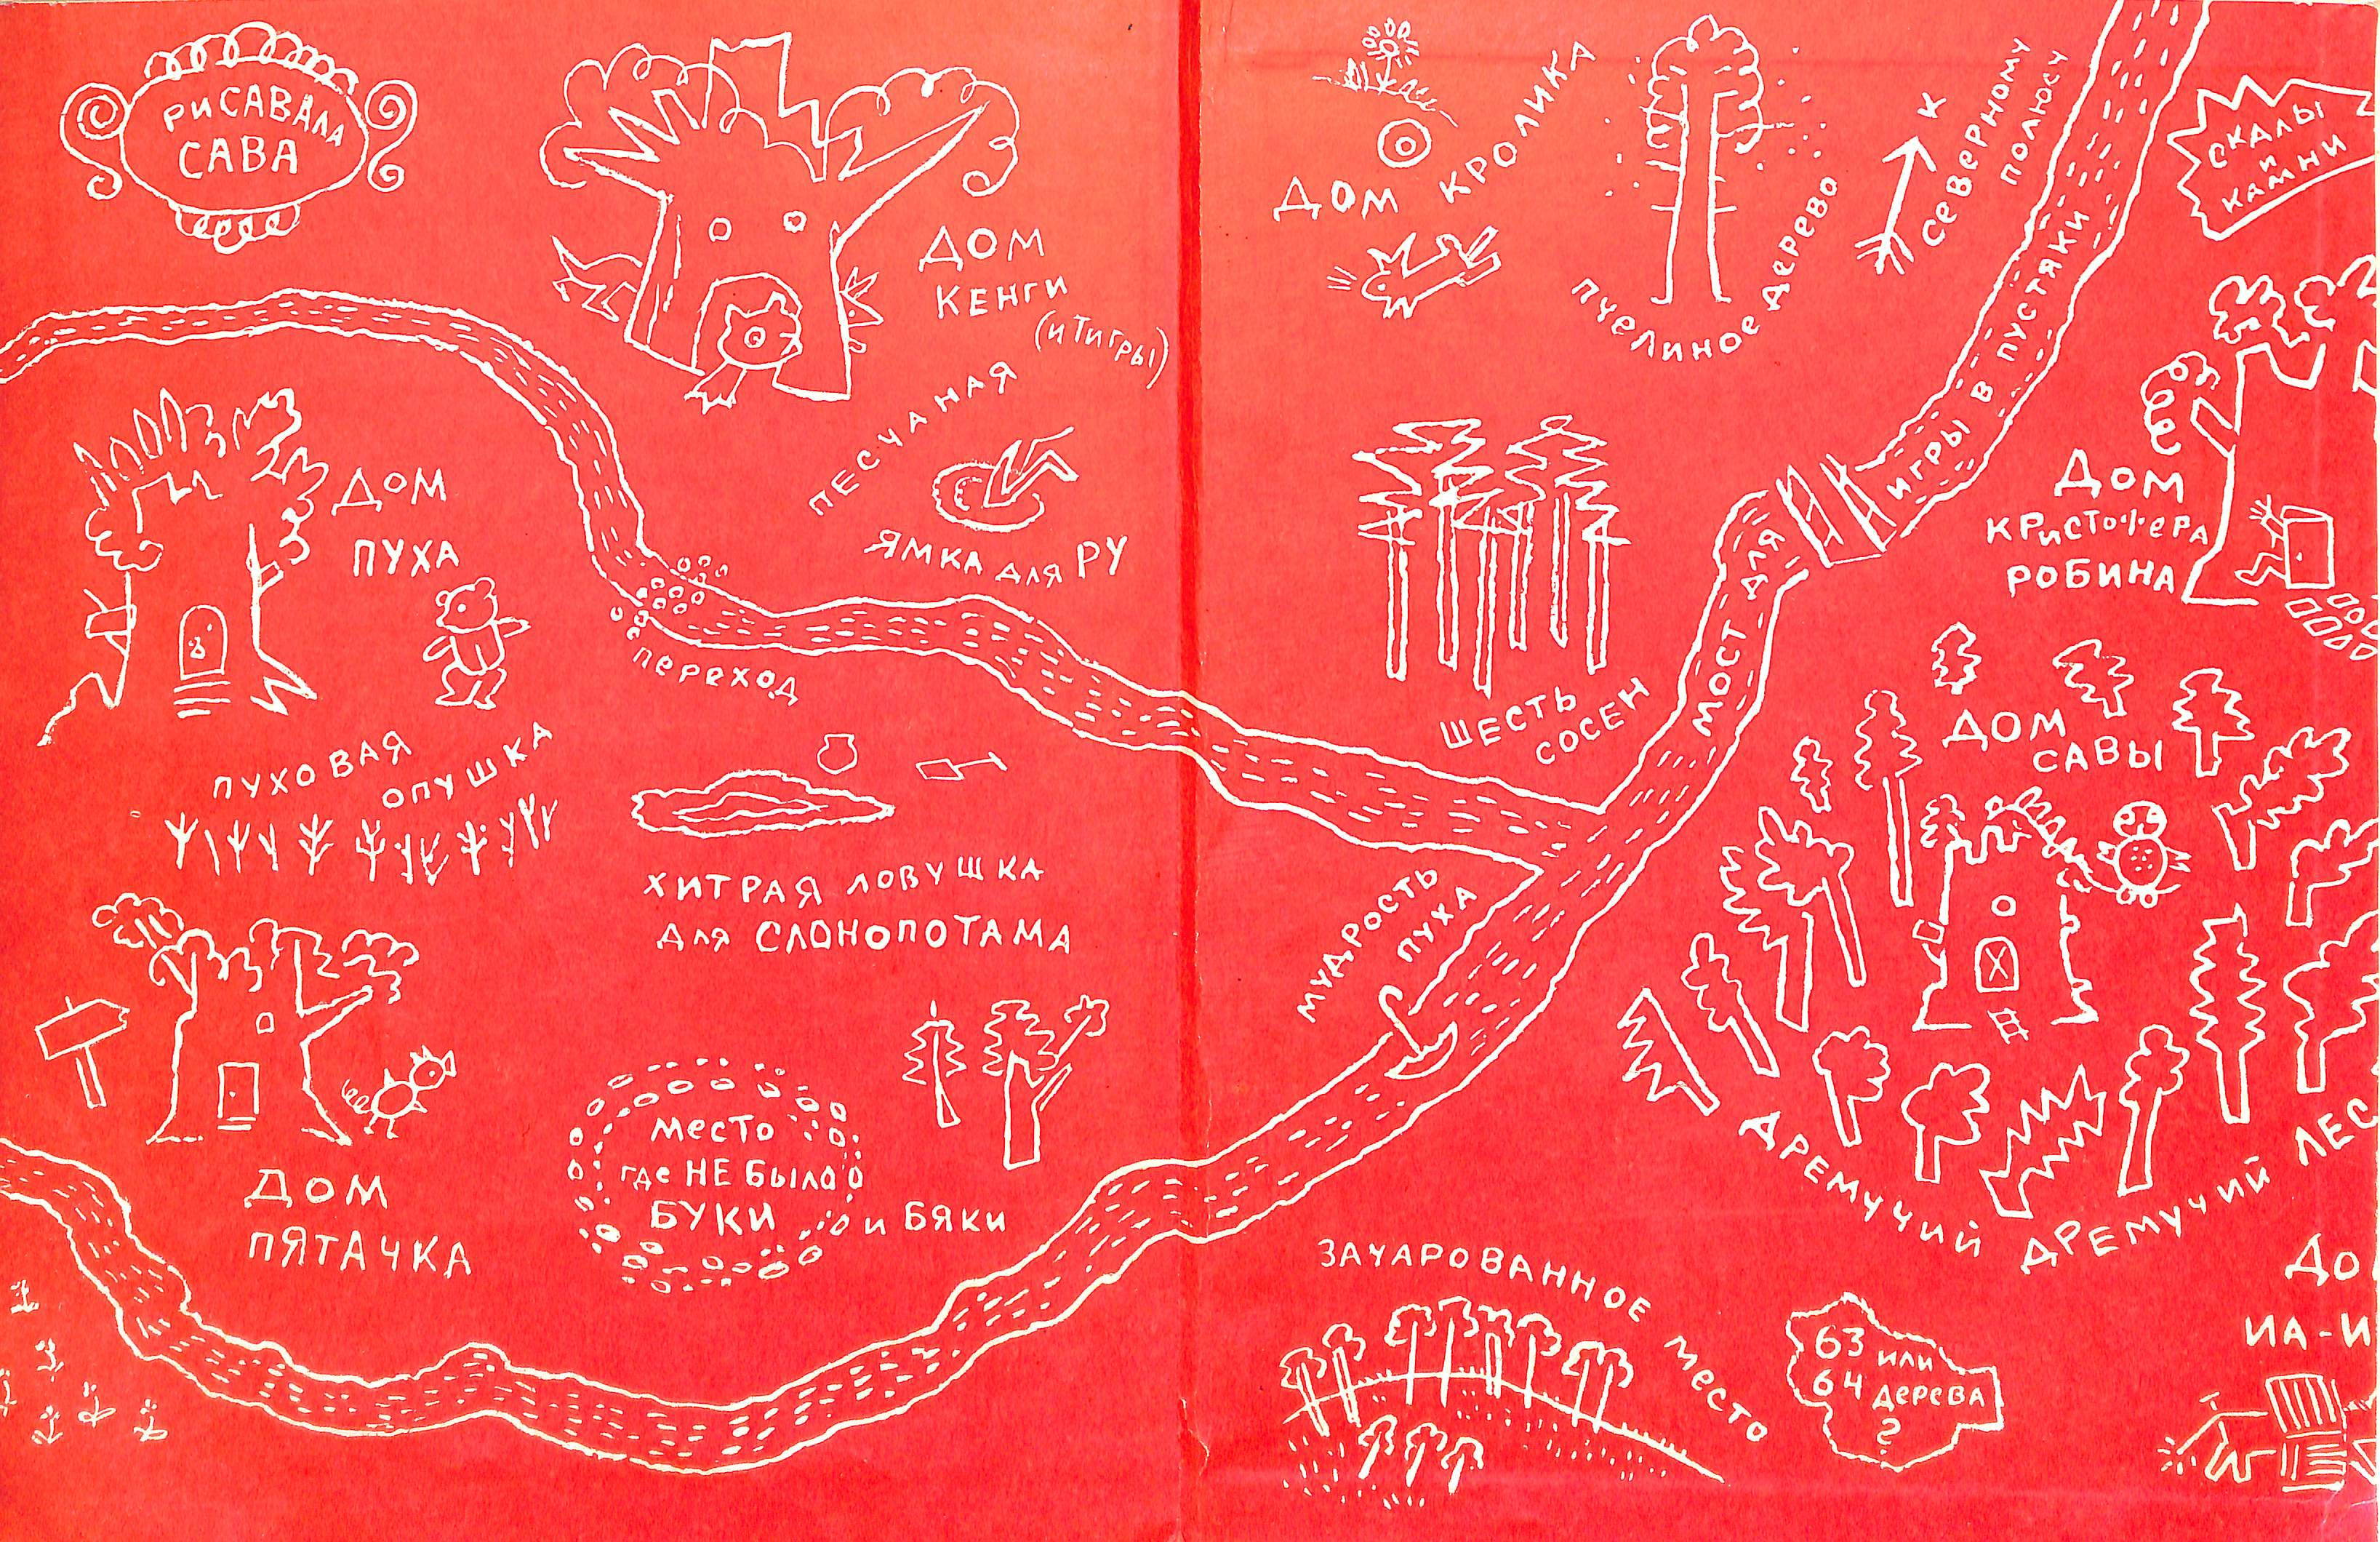 РИСАВАЛА
САВА
ДОМ
КЕНГИ
(и ТИГРЫ)
ПЕСЧАНАЯ
ЯМКА для РУ
ДОМ КРОЛИКА
ПЧЕЛИНОЕ ДЕРЕВО
К
СЕВЕРНОМУ
ПОЛЮСУ
СКАЛЫ
и
КАМНИ
ДОМ
ПУХА
ПЕРЕХОД
ПУХОВАЯ
ОПУШКА
ШЕСТЬ
СОСЕН
МОСТ для ИГРЫ В ПУСТЯКИ
ДОМ
КРИСТОФЕРА
РОБИНА
ДОМ
САВЫ
ХИТРАЯ ЛОВУШКА
для СЛОНОПОТАМА
МУДРОСТЬ
ПУХА
ДОМ
ПЯТАЧКА
МЕСТО
где НЕ БЫЛО
БУКИ и БЯКИ
ДРЕМУЧИЙ ДРЕМУЧИЙ ЛЕС
ЗАЧАРОВАННОЕ МЕСТО
63 или
64 дерева
?
ДО
ИА-И